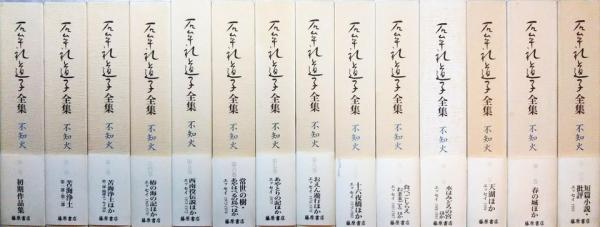 石牟礼道子全集 不知火
初期作品集
藤原書店
石牟礼道子全集 不知火
苦海浄土
藤原書店
石牟礼道子全集 不知火
苦海浄土ほか
藤原書店
石牟礼道子全集 不知火
椿の海の記ほか
藤原書店
石牟礼道子全集 不知火
西南役伝説ほか
藤原書店
石牟礼道子全集 不知火
常世の樹・
あやはべるの島へほか
藤原書店
石牟礼道子全集 不知火
あやとりの記ほか
藤原書店
石牟礼道子全集 不知火
おえん遊行ほか
藤原書店
石牟礼道子全集 不知火
十六夜橋ほか
藤原書店
石牟礼道子全集 不知火
食べごしらえ
おままごとほか
藤原書店
石牟礼道子全集 不知火
水はみどろの宮ほか
藤原書店
石牟礼道子全集 不知火
天湖ほか
藤原書店
石牟礼道子全集 不知火
春の城ほか
藤原書店
石牟礼道子全集 不知火
短篇小説・
批評
藤原書店